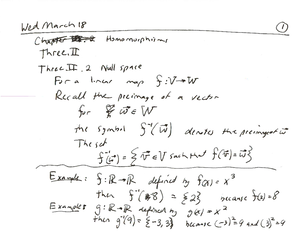 Wed March 18
①
Homomorphisms
Three.II
Three.II.2 Null space
For a linear map f: V → W
Recall the preimage of a vector
for w⃗ ∈ W
the symbol f⁻¹(w⃗) denotes the preimage of w⃗
The set
f⁻¹(w⃗) = { v⃗ ∈ V such that f(v⃗) = w⃗ }
Example: f: ℝ → ℝ defined by f(x) = x³
then f⁻¹(8) = {2} because f(2) = 8
Example: g: ℝ → ℝ defined by g(x) = x²
then g⁻¹(9) = {-3, 3} because (-3)² = 9 and (3)² = 9